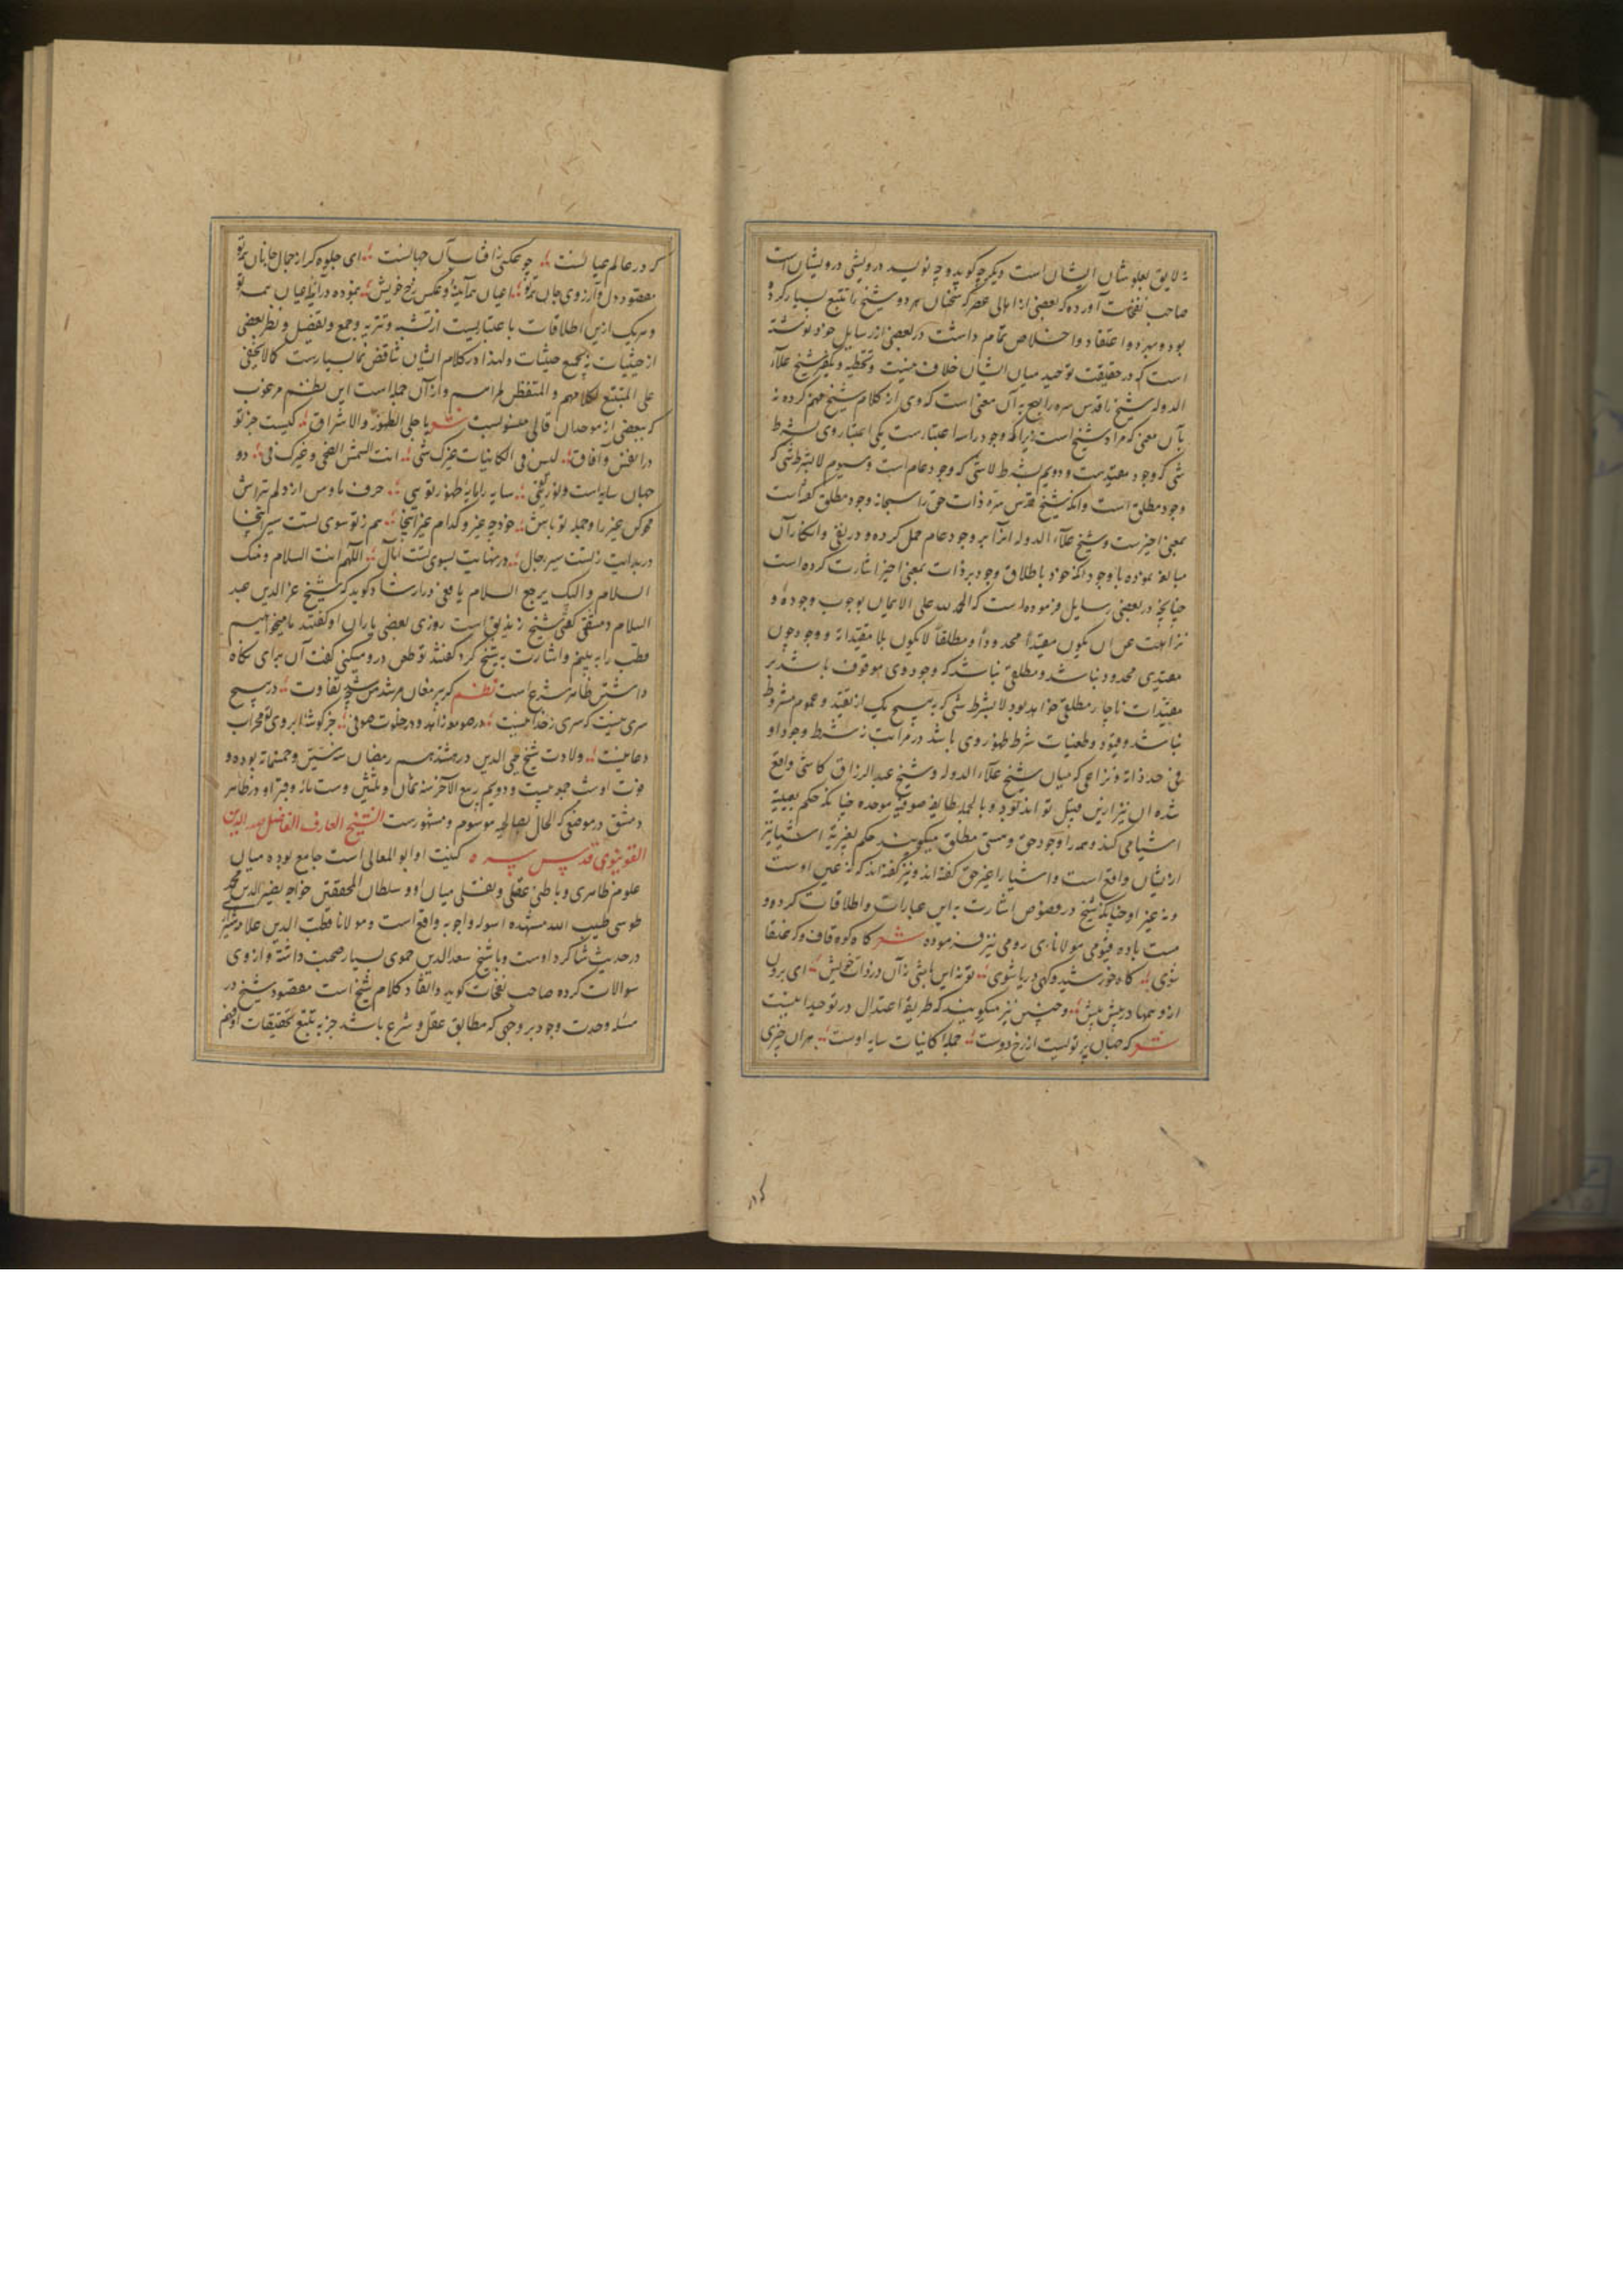 نه لایق بعلو شان ایشان است دیگر چه گوید و چه نویسد درویشی درویشان است
صاحب نفحات آورده که بعضی از اهالی عصر که سخنان هر دو شیخ را تتبع بسیار کرده
بود و بهر دو اعتقاد و اخلاص تمام داشت در بعضی از رسایل خود نوشته
است که در حقیقت توحید میان ایشان خلاف نیست و تخطیه و تکفیر شیخ علاء
الدوله شیخ را قدس سره راجع به آن معنی است که وی از کلام شیخ فهم کرده نه
بآن معنی که مراد شیخ است زیرا که وجود را سه اعتبارست یکی اعتبار وی بشرط
شی که وجود مقیدست و دویم بشرط لاشی که وجود عام است و سیوم لا بشرط شی که
وجود مطلق است و آنکه شیخ قدس سره ذات حق را سبحانه وجود مطلق گفته است
بمعنی اخیرست و شیخ علاء الدوله آنرا بر وجود عام حمل کرده و در نفی و انکار آن
مبالغه نموده با وجود آنکه خود باطلاق وجود بر ذات بمعنی اخیر اشارت کرده است
چنانچه در بعضی رسایل فرموده است که الحمد لله علی الایمان بوجوب وجوده و
نزاهت عن ان یکون مقیداً محدوداً و مطلقاً لا یکون بلا مقیداته وجود چون
مقیدی محدود نباشد و مطلقی نباشد که وجود وی موقوف باشد بر
مقیدات ناچار مطلقی خواهد بود لا بشرط شی که به هیچ یک از تقید و عموم مشروط
نباشد و قیود و تعینات شرط ظهور وی باشد در مراتب نه شرط وجود او
فی حد ذاته و نزاعی که میان شیخ علاء الدوله و شیخ عبد الرزاق کاشی واقع
شده آن نیز ازین قبیل تواند بود و بالجمله طایفه صوفیه موحده چنانکه حکم بعینیة
اشیا می کنند و همه را وجود حق و هستی مطلق میگویند حکم بغیریة اشیا نیز
ازیشان واقع است و اشیا را غیر حق گفته اند و نیز گفته اند که نه عین اوست
و نه غیر او چنانکه شیخ در فصوص اشارت به این عبارات و اطلاقات کرده و
مست باده قیومی مولانای رومی نیز فرموده شعر گاه کوه قاف و گه عنقا
شوی گاه خورشید و گهی دریا شوی تو نه این باشی نه آن در ذات خویش ای برون
از وهمها در پیش پیش و حسین نیز میگویند که طریقه اعتدال در توحید اینست
شعر که جهان پرتویست از رخ دوست جمله کاینات سایه اوست هر آن چیزی
که در عالم عیانست چو عکسی ز آفتاب آن جهانست ای جلوه گر از جمال جانان همه تو
مقصود دل و آرزوی جان همه تو اعیان همه آینه و عکس رخ خویش بنموده در آینه اعیان همه تو
و هر یک ازین اطلاقات باعتباریست از تشبیه و تنزیه و جمع و تفضیل و نظر بعضی
از حیثیات نه بجمیع حیثیات و لهذا در کلام ایشان تناقض نما بسیارست کما لا یخفی
علی المتتبع لکلامهم و المتفطن لمرامهم و از آن جمله است این نظم مرغوب
که ببعضی از موحدان قالی منسوبست شعر یا جلی الظهور و الاشراق کیست جز تو
در انفس و آفاق لیس فی الکائنات غیرک شی انت شمس الضحی و غیرک فی دو
جهان سایه است و نور تویی سایه را مایه ظهور تویی حرف ما و من از دلم بتراش
محو کن غیر را و جمله تو باش خود چه غیر و کدام غیر آنجا هم ز تو سوی تست سیر اینجا
در بدایت ز تست سیر رجال در نهایت بسوی تست مآل اللهم انت السلام و منک
السلام و الیک یرجع السلام یافعی در ارشاد گوید که شیخ عز الدین عبد
السلام دمشقی گفتی شیخ زندیق است روزی بعضی یاران او گفتند ما میخواهیم
قطب را به بینیم و اشارت به شیخ کرد گفتند تو طعن در و میکنی گفت آن برای نگاه
داشتن ظاهر شرع است نظم گر پیر مغان مرشد من شد چه تفاوت در هیچ
سری نیست که سری ز خدا نیست در صومعه زاهد و در خلوت صوفی جز گوشه ابروی تو محراب
دعا نیست ولادت شیخ محی الدین در هفدهم رمضان سنه ستین و خمسمائه بوده و
فوت او شب جمعه بیست و دویم ربیع الآخر سنه ثمان و ثلثین و ستمائه و قبر او در ظاهر
دمشق در موضعی که الحال بصالحیه موسوم و مشهورست الشیخ العارف الفاضل صدر الدین
القونیوی قدس سره کنیت او ابو المعالی است جامع بوده میان
علوم ظاهری و باطنی عقلی و نقلی میان او و سلطان المحققین خواجه نصیر الدین محمد
طوسی طیب الله مشهده اسوله و اجوبه واقع است و مولانا قطب الدین علامه شیرازی
در حدیث شاگرد اوست و با شیخ سعد الدین حموی بسیار صحبت داشته و از وی
سوالات کرده صاحب نفحات گوید و نقاد کلام شیخ است مقصود شیخ در
مسئله وحدت وجود بر وجهی که مطابق عقل و شرع باشد جز به تتبع تحقیقات او فهم